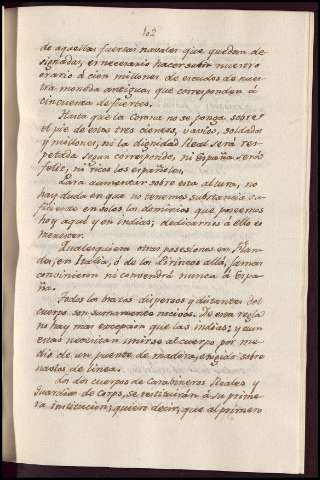 102
de aquellas fuerzas navales que quedan de
signadas, es necesario hacer subir nuestro
erario á cien millones de escudos de nues
tra moneda antigua, que corresponden á
cincuenta de fuertes.
Hasta que la Corona no se ponga sobre
el pie de estas tres cientos, vasos, soldados
y millones, ni la dignidad Real será res
petada segun corresponde, ni España será
feliz, ni ricos los españoles.
Para aumentar sobre esta altura, no
hay duda en que no tenemos substancia su
ficiente en solos los dominios que poseemos
hoy aquí y en indias; dedicarnos á ello es
menester.
Qualesquiera otras posesiones en Flan
des, en Italia, ó de los Pirineos allá, jamas
convinieron ni convendrá nunca á Espa
ña.
Todos los brazos dispersos y distantes del
cuerpo son sumamente nocivos. De esta regla
no hay mas excepcion que las indias; y aun
estas necesitan unirse al cuerpo por me
dio de un puente de madera, erigido sobre
nabios de linea.
Los dos cuerpos de Carabineros Reales y
Guardias de Corps, se restituirán á su prime
ra institucion; quiero decir, que el primero